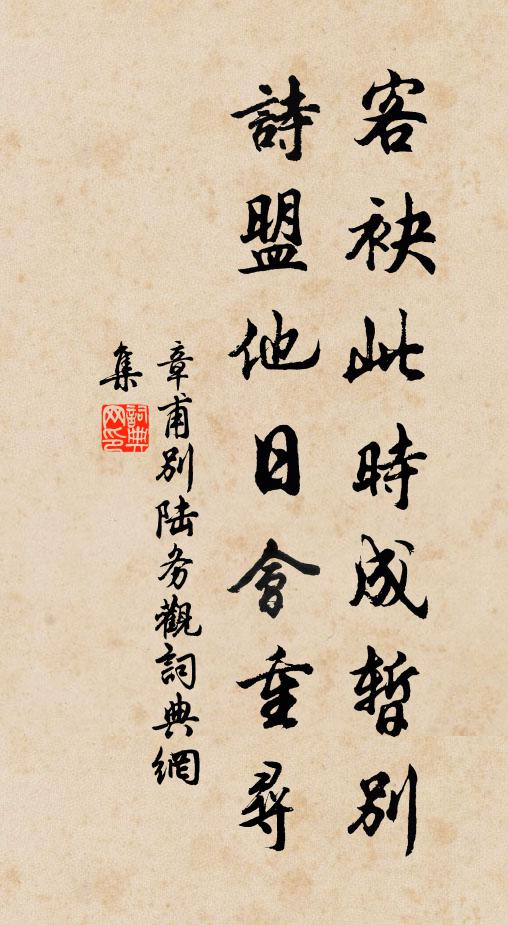 客袂此時成暫別
詩盟他日會重尋
章甫別陸务觀詞典網
集
詞典
网印